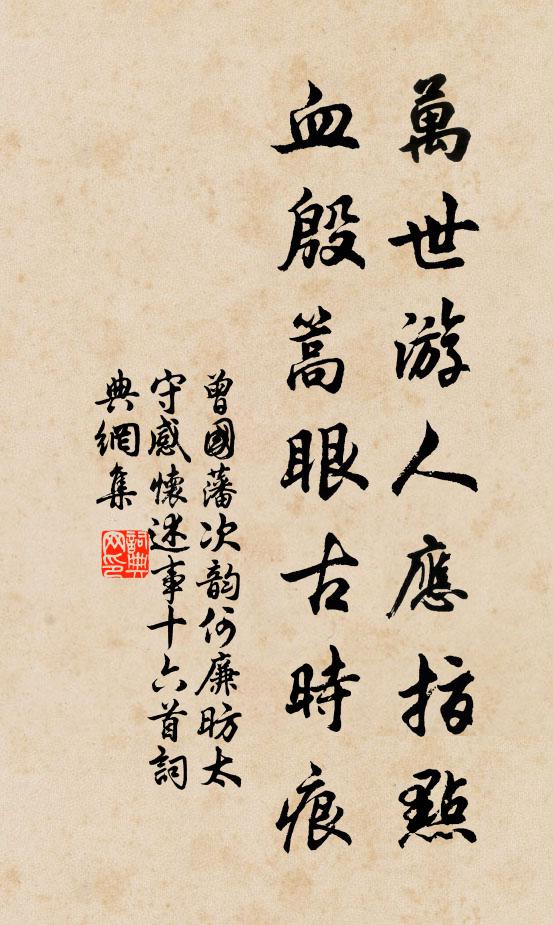 萬世游人應指點
血殷蒿眼古時痕
曾國藩次韵何廉昉太
守感懷述事十六首詞
典網集
詞典
网印